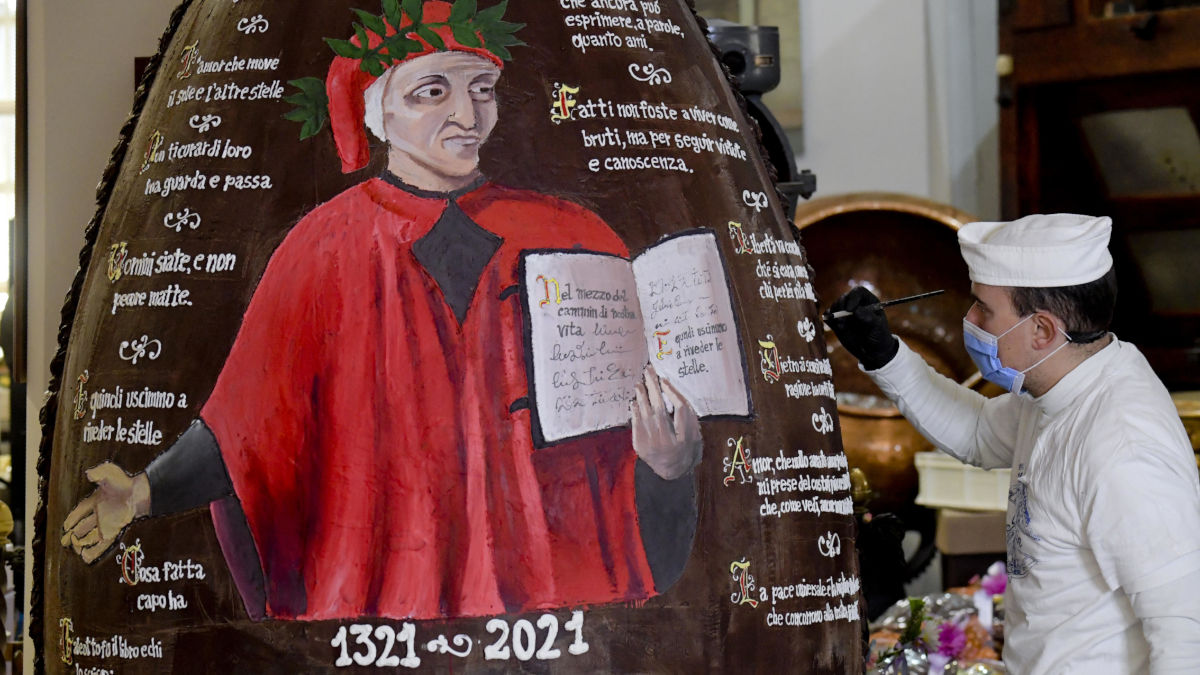 L'amor che move
il sole e l'altre stelle
Non ti curar di loro
ma guarda e passa
Uomini siate, e non
pecore matte.
E quindi uscimmo a
riveder le stelle
Cosa fatta
capo ha
Galeotto fu il libro e chi
Nel mezzo del
cammin di nostra
vita
E
quindi uscimmo
a riveder le
stelle.
che ancora può
esprimere, a parole,
quanto ami.
Fatti non foste a viver come
bruti, ma per seguir virtute
e canoscenza.
Libertà va
ch'è sì cara
chi per lei
Dietro ai
ragione
Amor, che nullo amato
mi prese del costui
che, come vedi, ancor
La pace universale e la
che concorrono alla
1321 2021